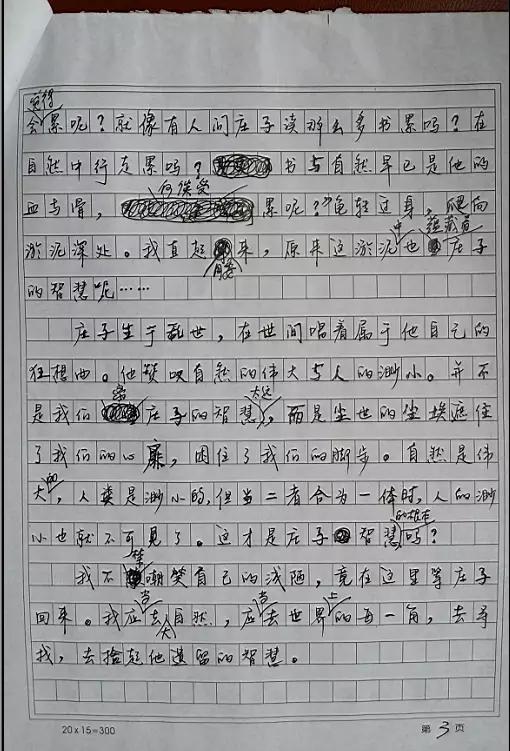 觉得
会累呢？就像有人问庄子读那么多书累吗？在
自然中行走累吗？书与自然早已是他的
何谈受
血与骨，累呢？”龟轻过身，爬向
中 蕴藏着
淤泥深处。我直起来，原来这淤泥也庄子
腰
的智慧呢……
庄子生于乱世，在世间唱着属于他自己的
狂想曲。他赞叹自然的伟大与人的渺小。并不
离 太远
是我们庄子的智慧，而是尘世的尘埃遮住
了我们的心扉，困住了我们的脚步。自然是伟
的
大，人类是渺小的，但当二者合为一体时，人的渺
的根本
小也就不可见了。这才是庄子智慧吗？
禁
我不嘲笑自己的浅陋，竟在这里等庄子
当 当 上
回来。我应去自然，应去世界的每一角，去寻
大
找，去拾起他遗留的智慧。
20×15=300
第 3 页